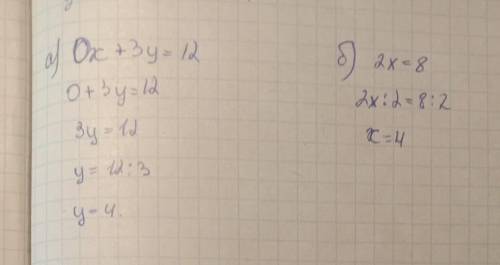 а) 0x + 3y = 12
0 + 3y = 12
3y = 12
y = 12 : 3
y = 4.
б) 2x = 8
2x : 2 = 8 : 2
x = 4